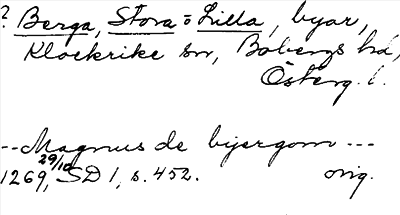 ? Berga, Stora o Lilla, byar,
Klockrike sn, Bobergs hd,
Österg. l.
--Magnus de bijergom ---
29/10
1269, SD 1, s. 452. orig.